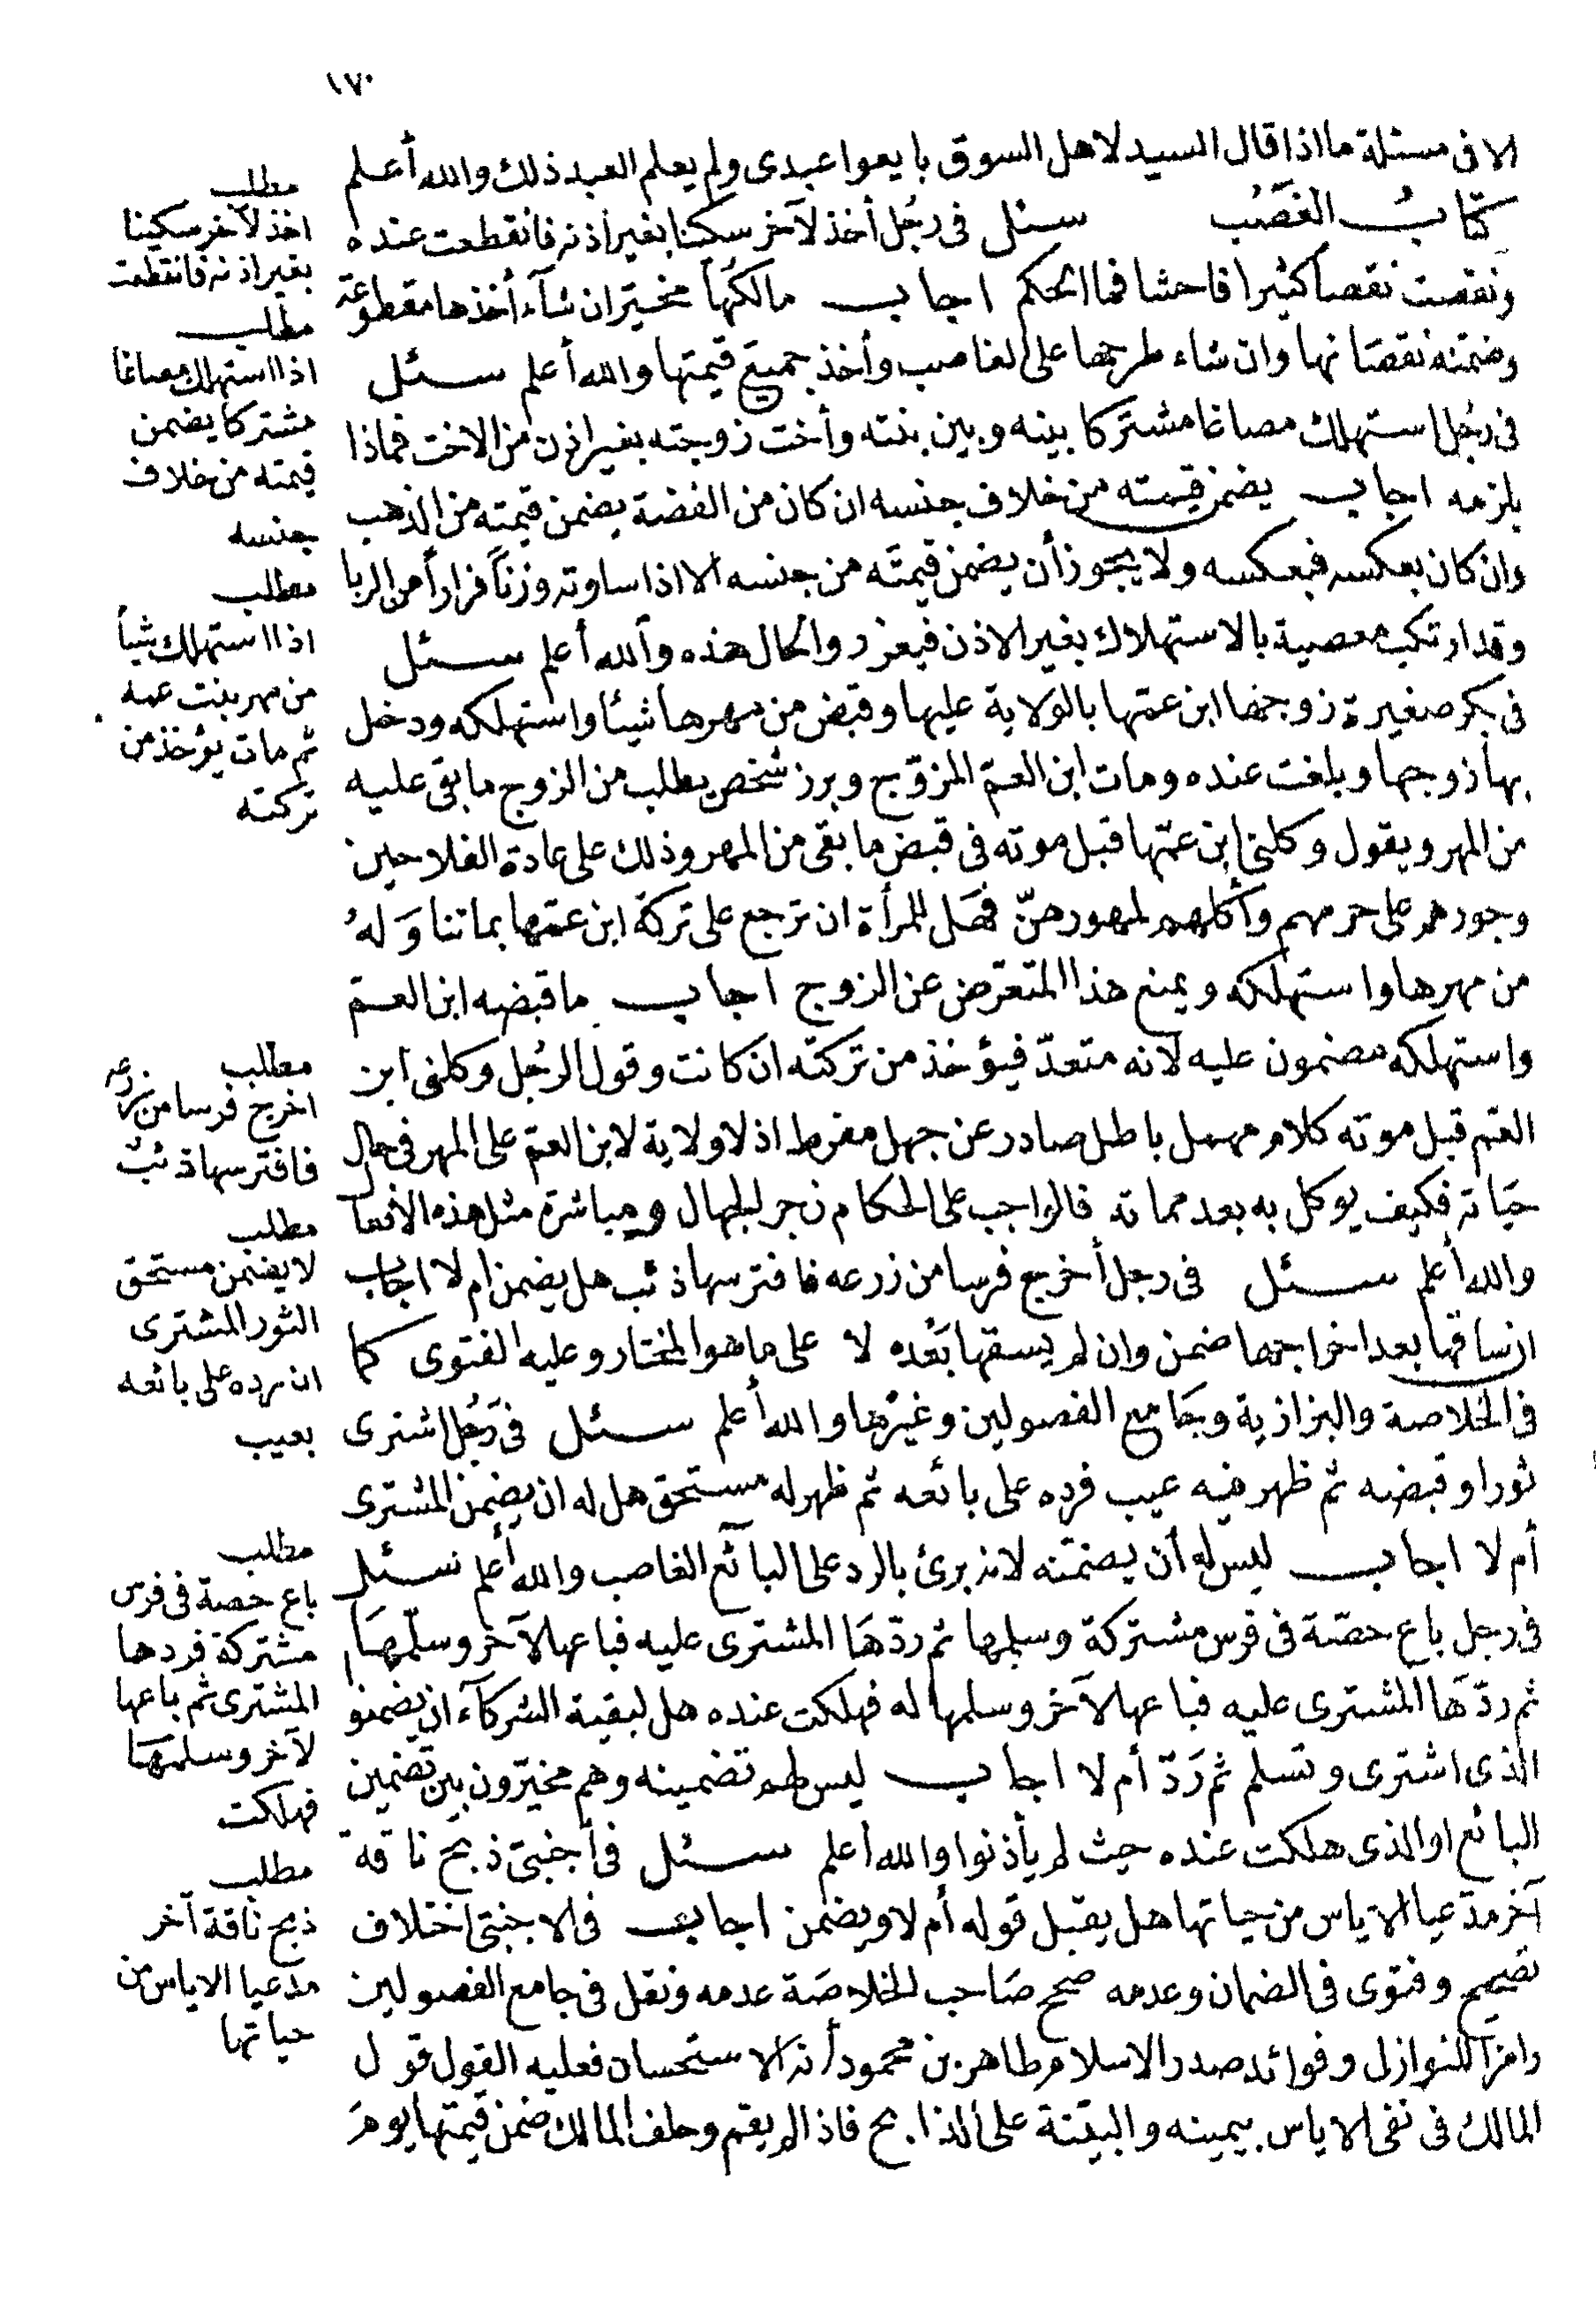 ١٧٠
الا فى مسئلة ما اذا قال السيد لاهل السوق بايعوا عبدى ولم يعلم العبد ذلك والله أعلم
كتاب الغصب سئل فى رجل أخذ لآخر سكينا بغير اذنه فانقطعت عنده
ونقصت نقصا كثيرا فاحشا فما الحكم اجاب مالكها مخير ان شاء أخذها مقطوعة
وضمنه نقصانها وان شاء طرحها على الغاصب وأخذ جميع قيمتها والله أعلم سئل
فى رجل استهلك مصاغا مشتركا بينه وبين بنته وأخت زوجته بغير اذن من الاخت فماذا
يلزمه اجاب يضمن قيمته من خلاف جنسه ان كان من الفضة يضمن قيمته من الذهب
وان كان بعكسه فبعكسه ولا يجوز أن يضمن قيمته من جنسه الا اذا ساوته وزنا فرارا من الربا
وقد ارتكب معصية بالاستهلاك بغير الاذن فيعزر والحال هذه والله أعلم سئل
فى بكر صغيرة زوجها ابن عمها بالولاية عليها وقبض من مهرها شيئا واستهلكه ودخل
بها زوجها وبلغت عنده ومات ابن العم المزوج وبرز شخص يطلب من الزوج ما بقى عليه
من المهر ويقول وكلنى ابن عمها قبل موته فى قبض ما بقى من المهر وذلك على عادة الفلاحين
وجورهم على حرمهم وأكلهم لمهورهن فهل للمرأة ان ترجع على تركة ابن عمها بما تناوله
من مهرها واستهلكه ويمنع هذا المتعرض عن الزوج اجاب ما قبضه ابن العم
واستهلكه مضمون عليه لانه متعد فيؤخذ من تركته ان كانت وقول الرجل وكلنى ابن
العم قبل موته كلام مهمل باطل صادر عن جهل مفرط اذ لا ولاية لابن العم على المهر فى حال
حياته فكيف يوكل به بعد مماته فالواجب على الحكام زجر الجهال ومباشرة مثل هذه الأفعال
والله أعلم سئل فى رجل أخرج فرسا من زرعه فافترسها ذئب هل يضمن ام لا اجاب
ان ساقها بعد اخراجها ضمن وان لم يسقها بعده لا على ما هو المختار وعليه الفتوى كما
فى الخلاصة والبزازية وجامع الفصولين وغيرها والله أعلم سئل فى رجل اشترى
ثورا وقبضه ثم ظهر فيه عيب فرده على بائعه ثم ظهر له مستحق هل له ان يضمن المشترى
أم لا اجاب ليس له أن يضمنه لانه برئ بالرد على البائع الغاصب والله أعلم سئل
فى رجل باع حصة فى فرس مشتركة وسلمها ثم ردها المشترى عليه فباعها لآخر وسلمها
ثم ردها المشترى عليه فباعها لآخر وسلمها له فهلكت عنده هل لبقية الشركاء ان يضمنوا
الذى اشترى وتسلم ثم رد أم لا اجاب ليس لهم تضمينه وهم مخيرون بين تضمين
البائع او الذى هلكت عنده حيث لم يأذنوا والله أعلم سئل فى أجنبى ذبح ناقة
آخر مدعيا الاياس من حياتها هل يقبل قوله أم لا ويضمن اجاب فى الاجنبى اختلاف
تصحيح وفتوى فى الضمان وعدمه صحح صاحب الخلاصة عدمه ونقل فى جامع الفصولين
رامزا للنوازل وفوائد صدر الاسلام طاهر بن محمود أنه الاستحسان فعليه القول قول
المالك فى نفى الاياس بيمينه والبينة على الذابح فاذا لم يقم وحلف المالك ضمن قيمتها يوم
مطلب
اخذ لآخر سكينا
بغير اذنه فانقطعت
مطلب
اذا استهلك مصاغا
مشتركا يضمن
قيمته من خلاف
جنسه
مطلب
اذا استهلك شيأ
من مهر بنت عمه
ثم مات يؤخذ من
تركته
مطلب
اخرج فرسا من زرعه
فافترسها ذئب
مطلب
لا يضمن مستحق
الثور المشترى
ان رده على بائعه
بعيب
مطلب
باع حصة فى فرس
مشتركة فردها
المشترى ثم باعها
لآخر وسلمها
فهلكت
مطلب
ذبح ناقة آخر
مدعيا الاياس من
حياتها